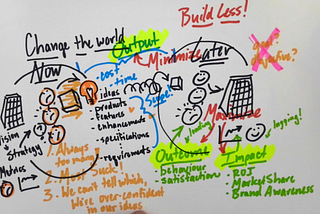 Build Less!
Change the world
Output
Minimize
Later
Now
goal
objective?
cost
time
ideas
Products
Features
enhancements
specifications
requirements
Scope
Maximize
Vision
Strategy
Metrics
1. Always too many
2. Most Suck!
3. We can't tell which,
We're over-confident
in our ideas
leading!
lagging!
Outcome
behaviour
satisfaction
Impact
ROI
MarketShare
Brand Awareness